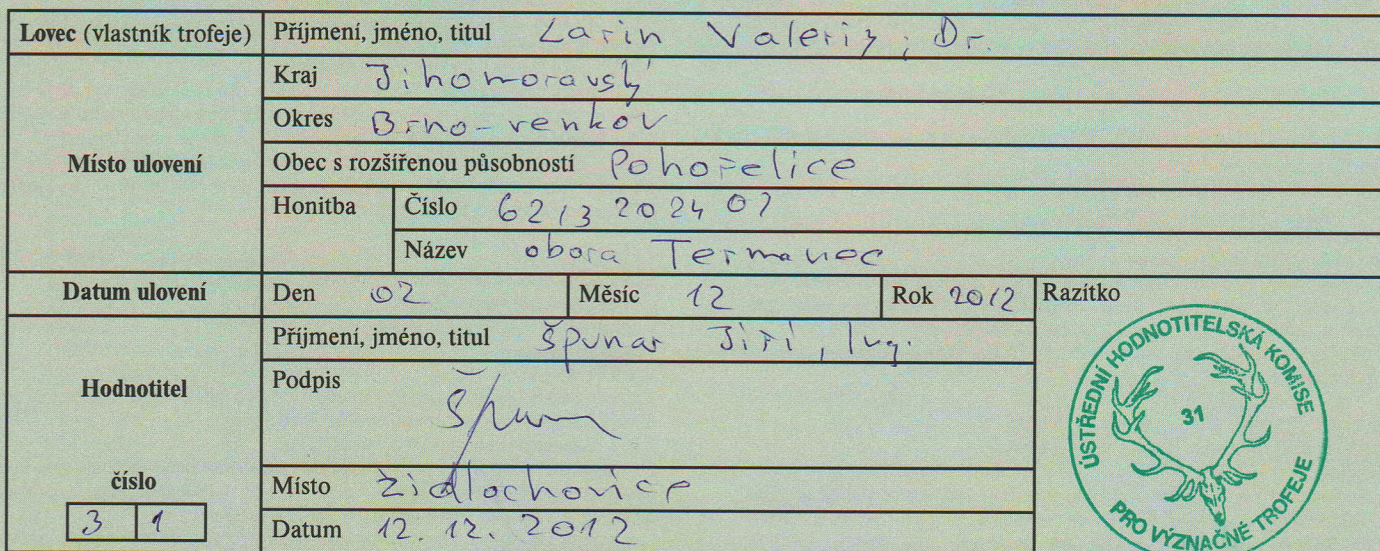 Lovec (vlastník trofeje) Příjmení, jméno, titul Larin Valeriy, Dr.
Místo ulovení
Kraj Jihomoravský
Okres Brno-venkov
Obec s rozšířenou působností Pohořelice
Honitba Číslo 6213202407
Název obora Termanec
Datum ulovení Den 02 Měsíc 12 Rok 2012 Razítko
Hodnotitel
Příjmení, jméno, titul Špunar Jiří, Ing.
Podpis
číslo
31
Místo Židlochovice
Datum 12. 12. 2012
ÚSTŘEDNÍ HODNOTITELSKÁ KOMISE
31
PRO VÝZNAČNÉ TROFEJE